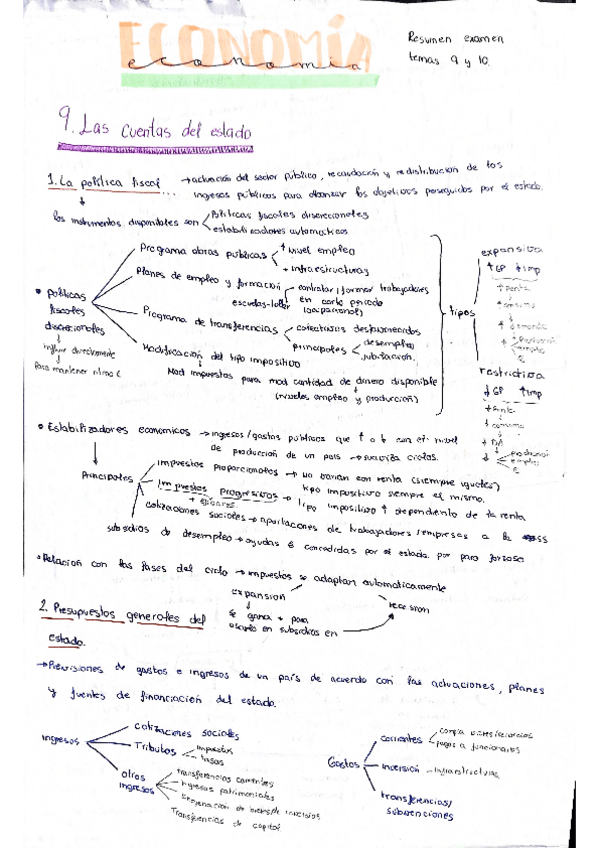 ECONOMÍA
economia
Resumen examen
temas 9 y 10.
9. Las cuentas del estado
1. La política fiscal → actuación del sector público, recaudación y redistribución de los
ingresos públicos para alcanzar los objetivos perseguidos por el estado.
los instrumentos disponibles son
Políticas fiscales discrecionales
estabilizadores automáticos
• Políticas fiscales discrecionales
influir directamente
Para mantener ritmo
Programa obras públicas
↑ nivel empleo
+ infraestructuras
Planes de empleo y formación
contratar / formar trabajadores
escuelas-taller
Programa de transferencias
colectivos desfavorecidos
principales
desempleo
jubilación.
Modificación del tipo impositivo
Mod impuestos para mod cantidad de dinero disponible
(niveles empleo y producción)
tipos
expansiva
↑ GP ↓ imp
↑ renta
↑ consumo
↑ demanda
↑ producción
empleo
restrictiva
↓ GP ↑ imp
↓ renta
↓ consumo
↓ DA
↓ producción
empleo
• Estabilizadores economicos → ingresos/gastos públicos que ↑ o ↓ con el nivel
de producción de un país → suaviza ciclos.
Principales
impuestos proporcionales → no varían con renta (siempre iguales)
tipo impositivo siempre el mismo.
impuestos progresivos → tipo impositivo ↑ dependiento de la renta
+ eficaces
cotizaciones sociales → aportaciones de trabajadores/empresas a la SS
subsidios de desempleo → ayudas concedidas por el estado. por paro forzoso
• Relación con las fases del ciclo → impuestos se adaptan automáticamente
expansión
se gana + para
en subsidios en
recesion
2. Presupuestos generales del
estado.
→ Previsiones de gastos e ingresos de un país de acuerdo con las actuaciones, planes
y fuentes de financiación del estado.
Ingresos
cotizaciones sociales
Tributos
impuestos
tasas
otros ingresos
transferencias corrientes
ingresos patrimoniales
Enajenación de inversiones
Transferencias de capital
Gastos
corrientes
compra
pagos a funcionarios
inversión → infraestructuras
transferencias/
subvenciones